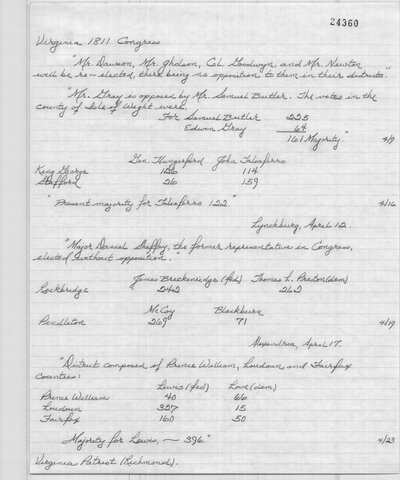 24360
Virginia 1811 Congress
"Mr. Dawson, Mr. Gholson, Col. Goodwyn, and Mr. Newton
will be re-elected, there being no opposition to them in their districts."
"Mr. Gray is opposed by Mr. Samuel Butler. The votes in the
county of Isle of Wight were,
For Samuel Butler 225
Edwin Gray 64
161 Majority" 4/9
Gen. Hungerford John Taliaferro
King George 126 114
Stafford 26 159
"Present majority for Taliaferro 122" 4/16
Lynchburg, April 12.
"Major Daniel Sheffey, the former representative in Congress,
elected without opposition."
James Breckenridge (fed) Thomas L. Preston (dem)
Rockbridge 242 262
McCoy Blackburn
Pendleton 269 71 4/19
Alexandria, April 17.
"District composed of Prince William, Loudoun, and Fairfax
Counties:
Lewis (fed) Love (dem)
Prince William 40 66
Loudoun 327 15
Fairfax 160 50
Majority for Lewis, — 396." 4/23
Virginia Patriot (Richmond).